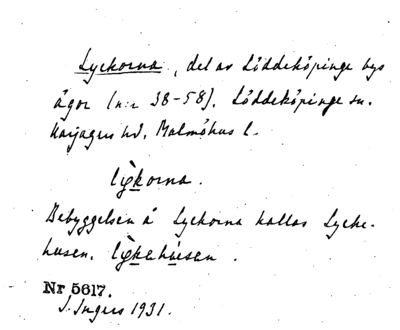 Lyckorna, del av Löddeköpinge bys
ägor (n:r 38-58). Löddeköpinge sn.
Harjagers hd, Malmöhus l.
lỳkorna.
Bebyggelsen å Lyckorna kallas Lycke-
husen. lỳkahúsen.
Nr 5617.
I. Ingers 1931.